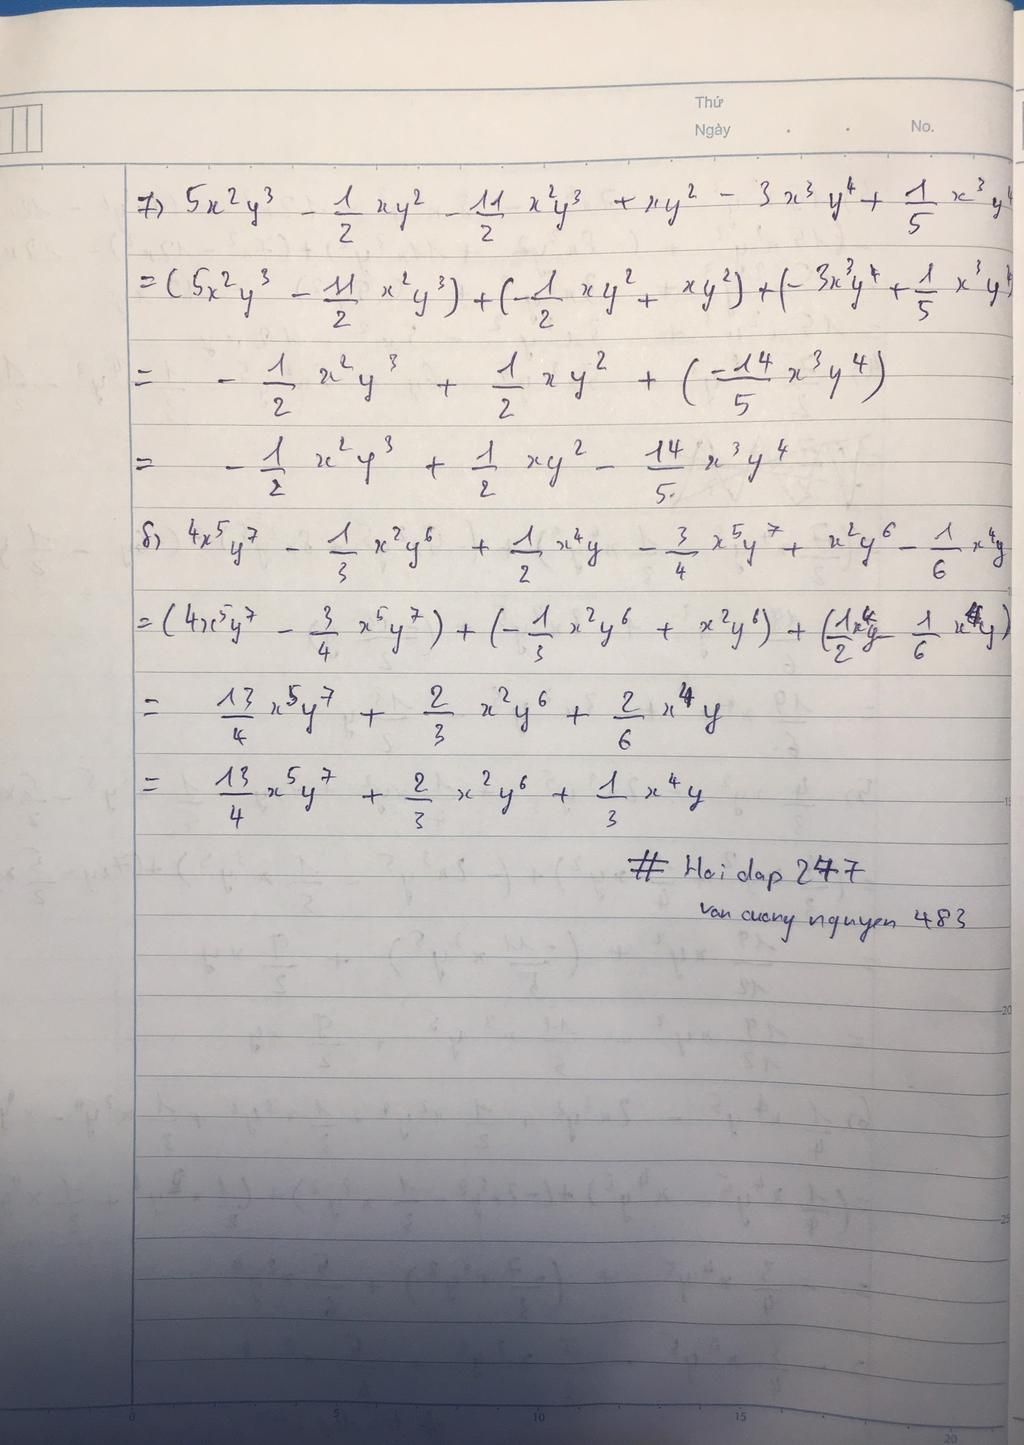 Thứ
Ngày . . No.
7) 5x²y³ - 1/2 xy² - 11/2 x²y³ + xy² - 3x³y⁴ + 1/5 x³y⁴
= (5x²y³ - 11/2 x²y³) + (-1/2 xy² + xy²) + (-3x³y⁴ + 1/5 x³y⁴)
= - 1/2 x²y³ + 1/2 xy² + (-14/5 x³y⁴)
= - 1/2 x²y³ + 1/2 xy² - 14/5 x³y⁴
8) 4x⁵y⁷ - 1/3 x²y⁶ + 1/2 x⁴y - 3/4 x⁵y⁷ + x²y⁶ - 1/6 x⁴y
= (4x⁵y⁷ - 3/4 x⁵y⁷) + (-1/3 x²y⁶ + x²y⁶) + (1/2 x⁴y - 1/6 x⁴y)
= 13/4 x⁵y⁷ + 2/3 x²y⁶ + 2/6 x⁴y
= 13/4 x⁵y⁷ + 2/3 x²y⁶ + 1/3 x⁴y
# Hoi dap 247
van cuong nguyen 483
0 5 10 15 20